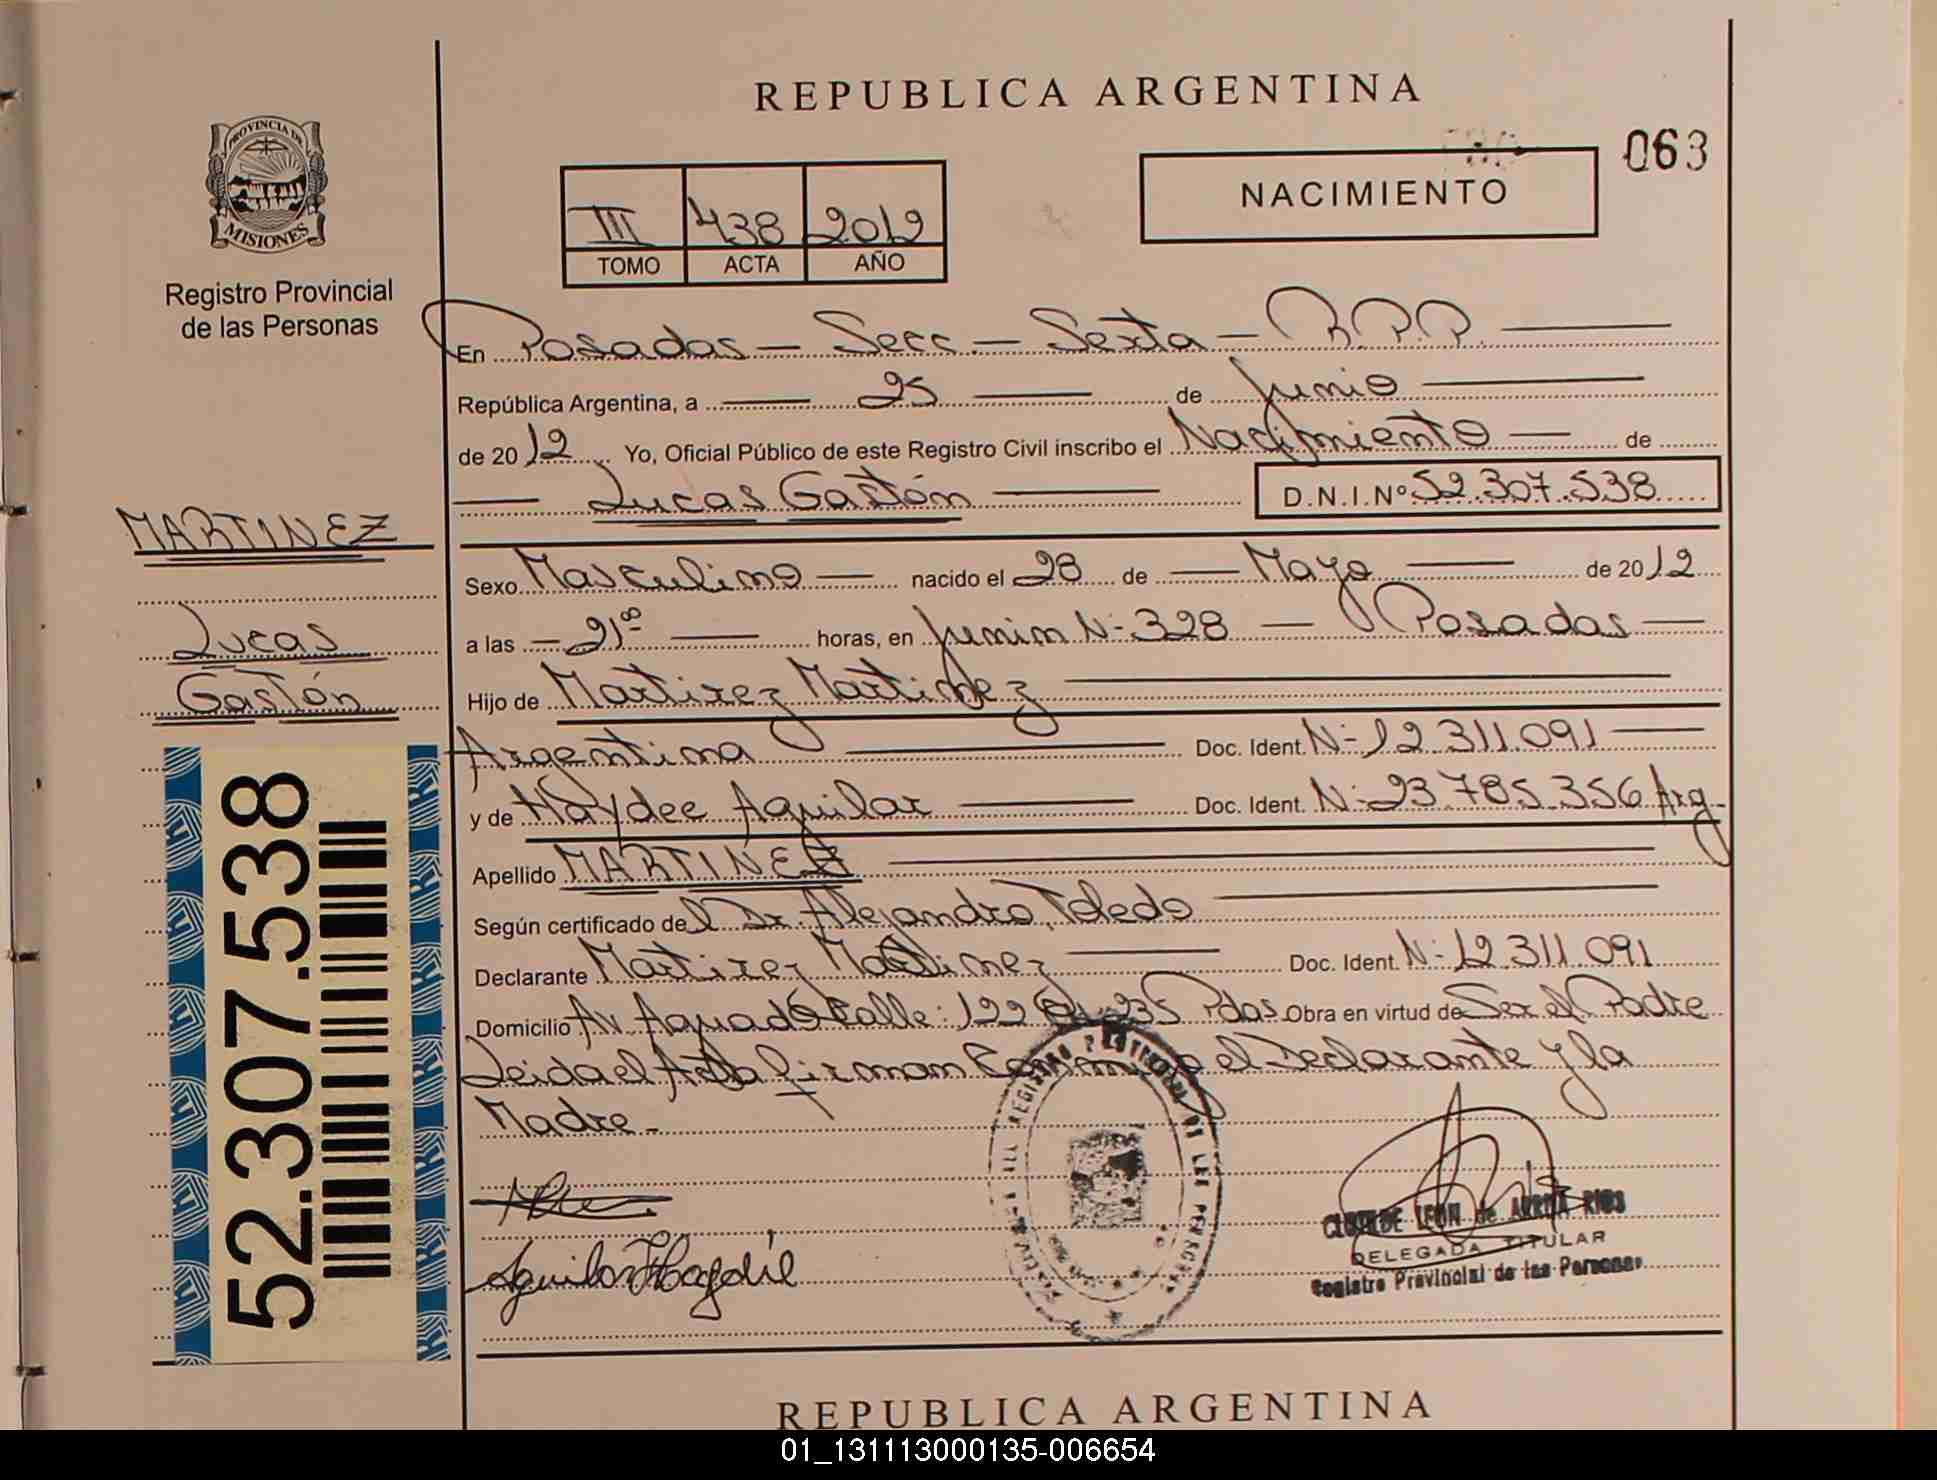 REPUBLICA ARGENTINA
063
PROVINCIA DE
MISIONES
Registro Provincial
de las Personas
III 438 2012
TOMO ACTA AÑO
NACIMIENTO
En Posadas - Secc. - Sexta - R.P.P.
República Argentina, a 25 de Junio
de 2012 Yo, Oficial Público de este Registro Civil inscribo el Nacimiento de
Lucas Gastón D.N.I.Nº 52.307.538
MARTINEZ
Lucas
Gastón
Sexo Masculino nacido el 28 de Mayo de 2012
a las 21⁰⁰ horas, en Junin N- 328 - Posadas
Hijo de Martirez Martinez
Argentina Doc. Ident. N- 12.311.091
y de Haydee Aguilar Doc. Ident. N- 23.785.356 Arg-
Apellido MARTINEZ
Según certificado del Dr. Alejandro Toledo
Declarante Martirez Martinez Doc. Ident. N- 12.311.091
Domicilio Av Aguado Calle: 122 235 Pdas Obra en virtud de Ser el Padre
Leida el Acta firman Conmigo el Declarante y la
Madre -
52.307.538
Aguilar
CLOTILDE LEON de RIOS
DELEGADA TITULAR
Registro Provincial de las Personas
REPUBLICA ARGENTINA
01_131113000135-006654